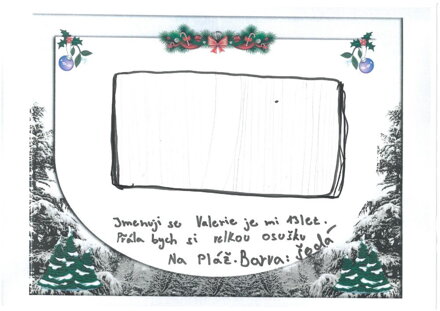 Jmenuji se Valerie je mi 13let.
Přála bych si velkou osušku
Na Pláž. Barva: Šedá